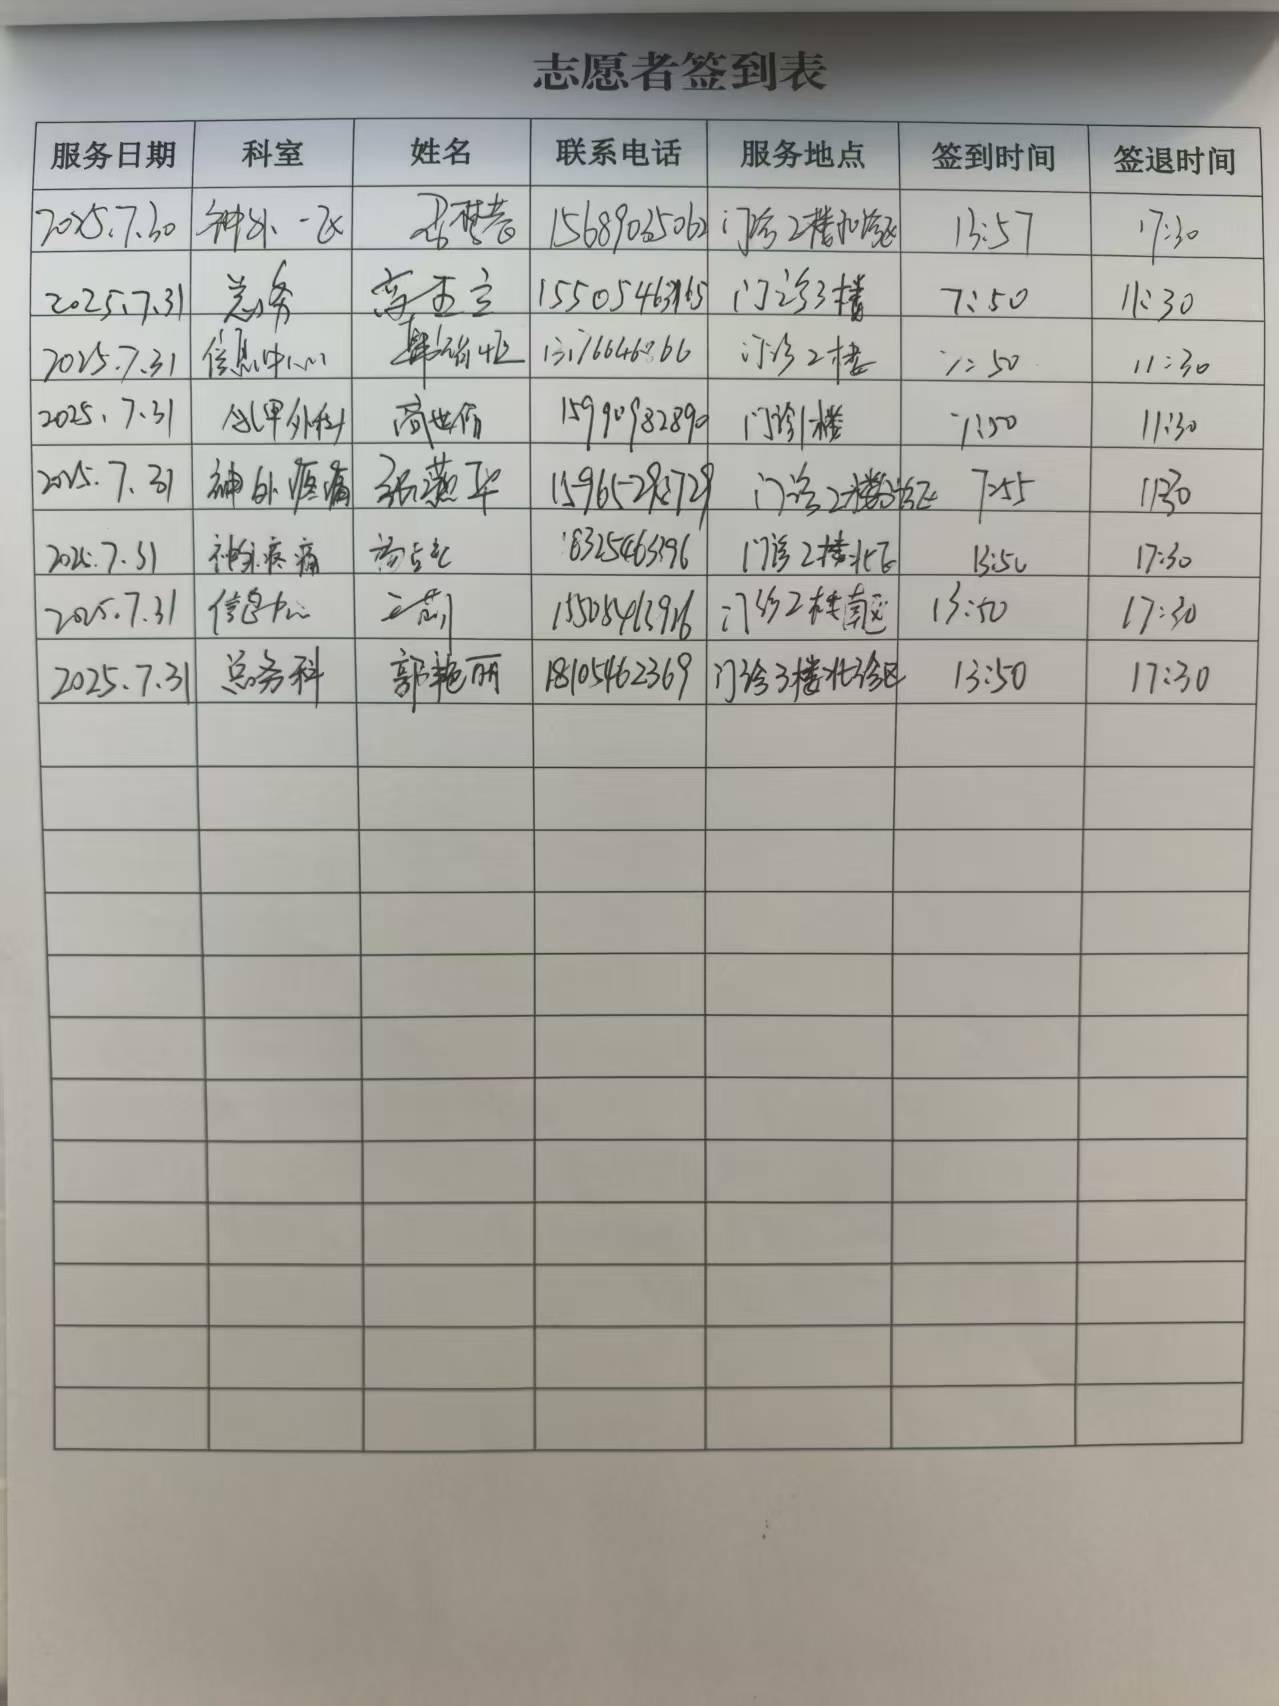 志愿者签到表
服务日期 科室 姓名 联系电话 服务地点 签到时间 签退时间
2025.7.30 神外一区 15689035062 门诊2楼北诊区 13:57 17:30
2025.7.31 总务 15505463165 门诊3楼 7:50 11:30
2025.7.31 信息中心 门诊2楼 7:50 11:30
2025.7.31 甲外科 15990982890 门诊1楼 7:50 11:30
2025.7.31 神外疼痛 张燕华 门诊2楼 7:55 11:30
2025.7.31 神外疼痛 18325463196 门诊2楼北区 13:50 17:30
2025.7.31 信息中心 门诊2楼南区 13:50 17:30
2025.7.31 总务科 郭艳丽 18105462369 门诊3楼北诊区 13:50 17:30